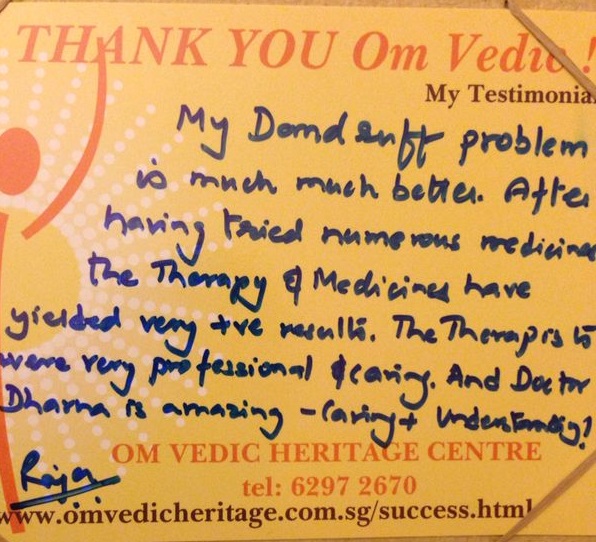 THANK YOU Om Vedic !
My Testimonial
My Domdruff problem
is much much better. After
having tried numerous medicines
the Therapy & Medicines have
yielded very +ve results. The Therapists
were very professional & caring. And Doctor
Dharma is amazing - Caring + Understanding!
OM VEDIC HERITAGE CENTRE
Raja
tel: 6297 2670
www.omvedicheritage.com.sg/success.html